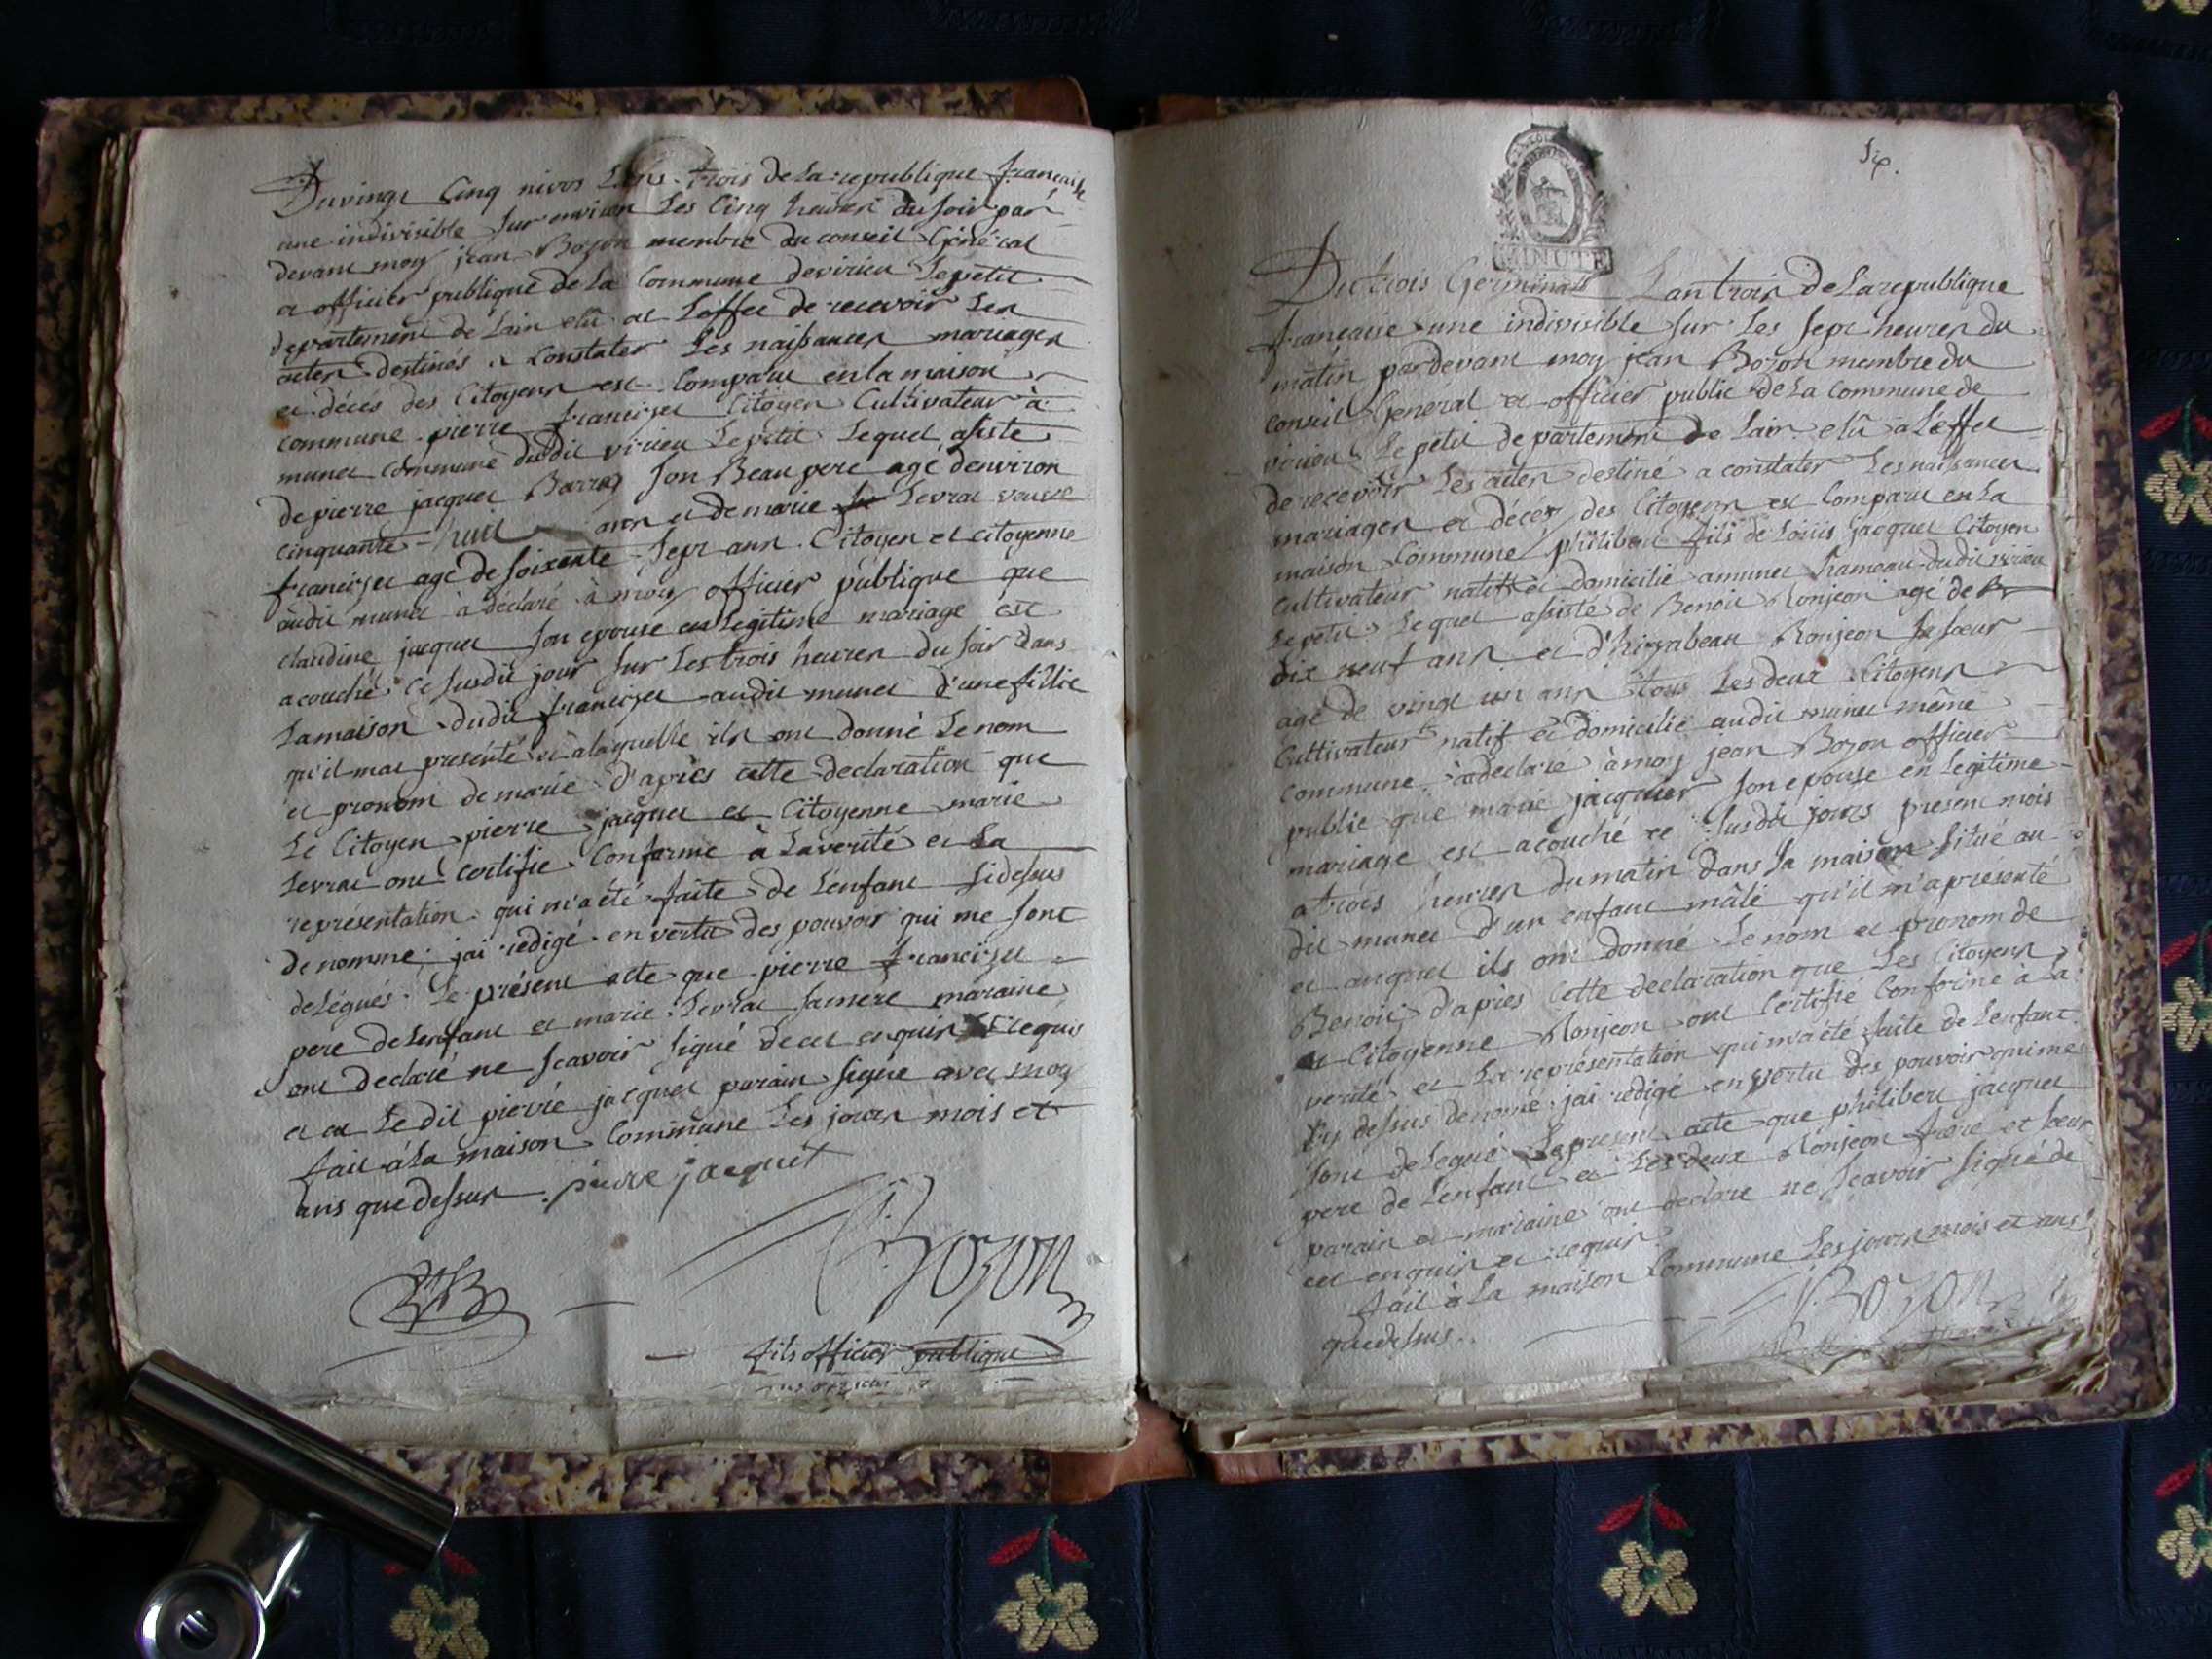 Du vingt Cinq nivos Lans trois de La republique francaise
une indivisible sur environ Les Cinq heures du soir par
devant moy jean Bozon membre du conseil Général
et officier publique de La Commune de virieu Le petit
departement de Lain elû at Leffet de recevoir Les
actes destinés a constater Les naissances mariages
et déces des Citoyens est Comparu en la maison
commune pierre francizet Citoyen Cultivateur à
munet commune dudit virieu Le petit Lequel asisté
de pierre jacquet Barraz son Beau pere agé d'environ
cinquante-huit ans et de marie Levrat veuve
francizet agé de soixente-sept ans Citoyen et citoyenne
audit munet à déclaré à moy officier publique que
claudine jacquet son epouse en Legitime mariage est
acouché ce susdit jour sur Les trois heures du soir dans
La maison dudit francizet audit munet d'une fillie
qu'il mat presenté et a laquelle ils ont donné Le nom
et pronom de marie d'après cette declaration que
Le Citoyen pierre jacquet et Citoyenne marie
Levrat ont certifie Conforme à La verité et La
représentation qui m'a été faite de L'enfant sidessus
denommé jai redigé en vertu des pouvoir qui me sont
délégués Le présent acte que pierre francizet
pere de Lenfant et marie Levrat sa mere maraine
ont declaré ne scavoir signé de ce enquis et requis
et Le dit pierre jacquet parain signe avec moy
fait à la maison Commune Les jours mois et
ans que dessus pierre jacquet
Bozon
fils officier publique
Six.
MINUTE
Du trois Germinal L an trois de La republique
francaise une indivisible sur Les sept heures du
matin pardevant moy jean Bozon membre du
conseil General et officier public de La commune de
virieu Le petit departement de Lain elû a L'effet
de recevoir Les actes destiné a constater Les naissances
mariages et décés des Citoyens est Comparu en La
maison Commune philibert fils de Loüis jacquet Citoyen
Cultivateur natif et domicilié a munet hameau dudit virieu
Le petit Lequel assisté de Benoit Monjeon agé de
dix neuf ans et d'hizabeau Monjeon sa sœur
agé de vingt un ans tous Les deux Citoyens
Cultivateurs natif et domicilié audit munet même
commune à declaré à moy jean Bozon officier
public que marie jacquier son epouse en Legitime
mariage est acouché ce susdit jours present mois
a trois heures du matin dans sa maison situé au
dit munet d'un enfant mâle qu'il m'a présenté
et auquel ils ont donné Le nom et pronom de
Benoit d'apries cette declaration que Les Citoyens
et Citoyenne Monjeon ont Certifié Conforme à La
verité et La représentation qui m'a été faite de L'enfant
sy dessus denomé jai redigé en vertu des pouvoir qui me
sont delegué Le present acte que philibert jacquet
pere de L'enfant et Les deux Monjeon frere et sœur
parain et maraine ont declare ne scavoir signé de
cet enquis et requis
fait à La maison Commune Les jours mois et ans
que dessus
Bozon